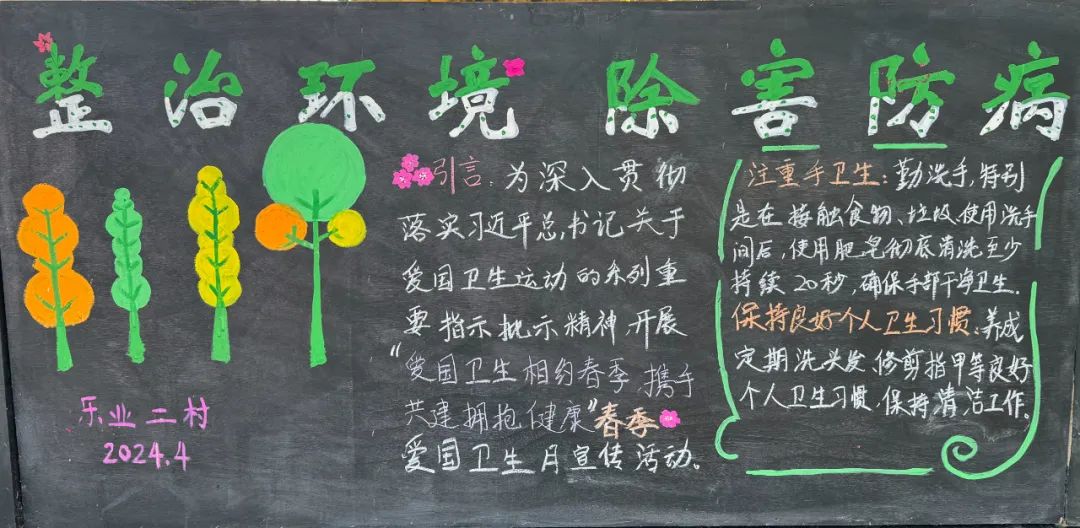 整治环境 除害防病
引言:为深入贯彻
落实习近平总书记关于
爱国卫生运动的系列重
要指示批示精神,开展
“爱国卫生相约春季,携手
共建拥抱健康”春季
爱国卫生月宣传活动。
注重手卫生:勤洗手,特别
是在接触食物、垃圾、使用洗手
间后,使用肥皂彻底清洗至少
持续20秒,确保手部干净卫生.
保持良好个人卫生习惯:养成
定期洗头发、修剪指甲等良好
个人卫生习惯,保持清洁工作.
乐业二村
2024.4